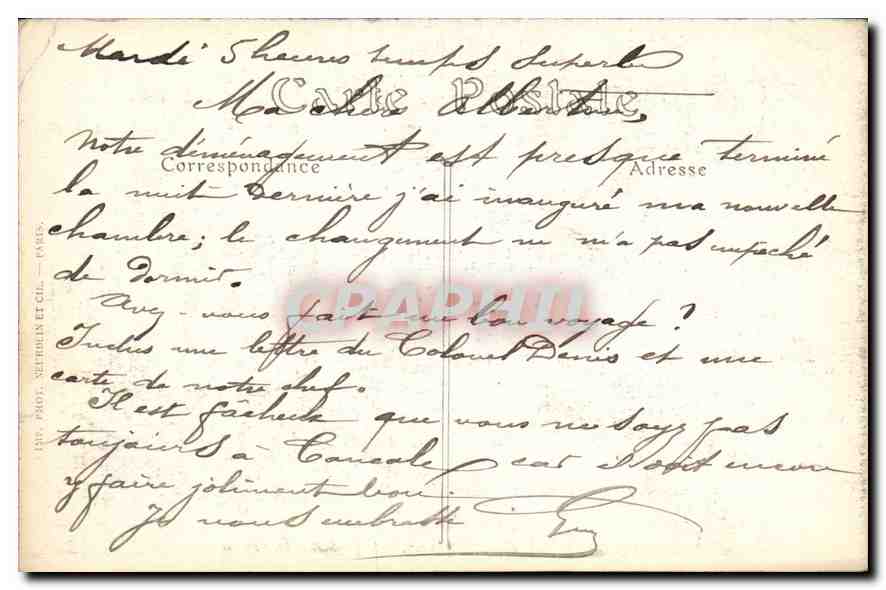 Mardi 5 heures temps superbe
Carte Postale
Ma chère Albertine,
Correspondance
Adresse
Notre déménagement est presque terminé
la nuit dernière j'ai inauguré ma nouvelle
chambre; le changement ne m'a pas empêché
de dormir.
CPAPHIL
Avez-vous fait un bon voyage?
Inclus une lettre du Colonel Denis et une
carte de notre chef.
Il est fâcheux que vous ne soyez pas
toujours à Cancale, car il doit encore
y faire joliment bon.
Je vous embrasse
IMP. PHOT. NEURDEIN ET CIE. — PARIS.